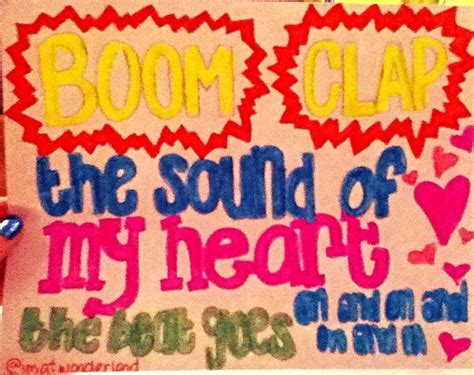 BOOM CLAP
the sound of
my heart
the beat goes on and on and
on and on